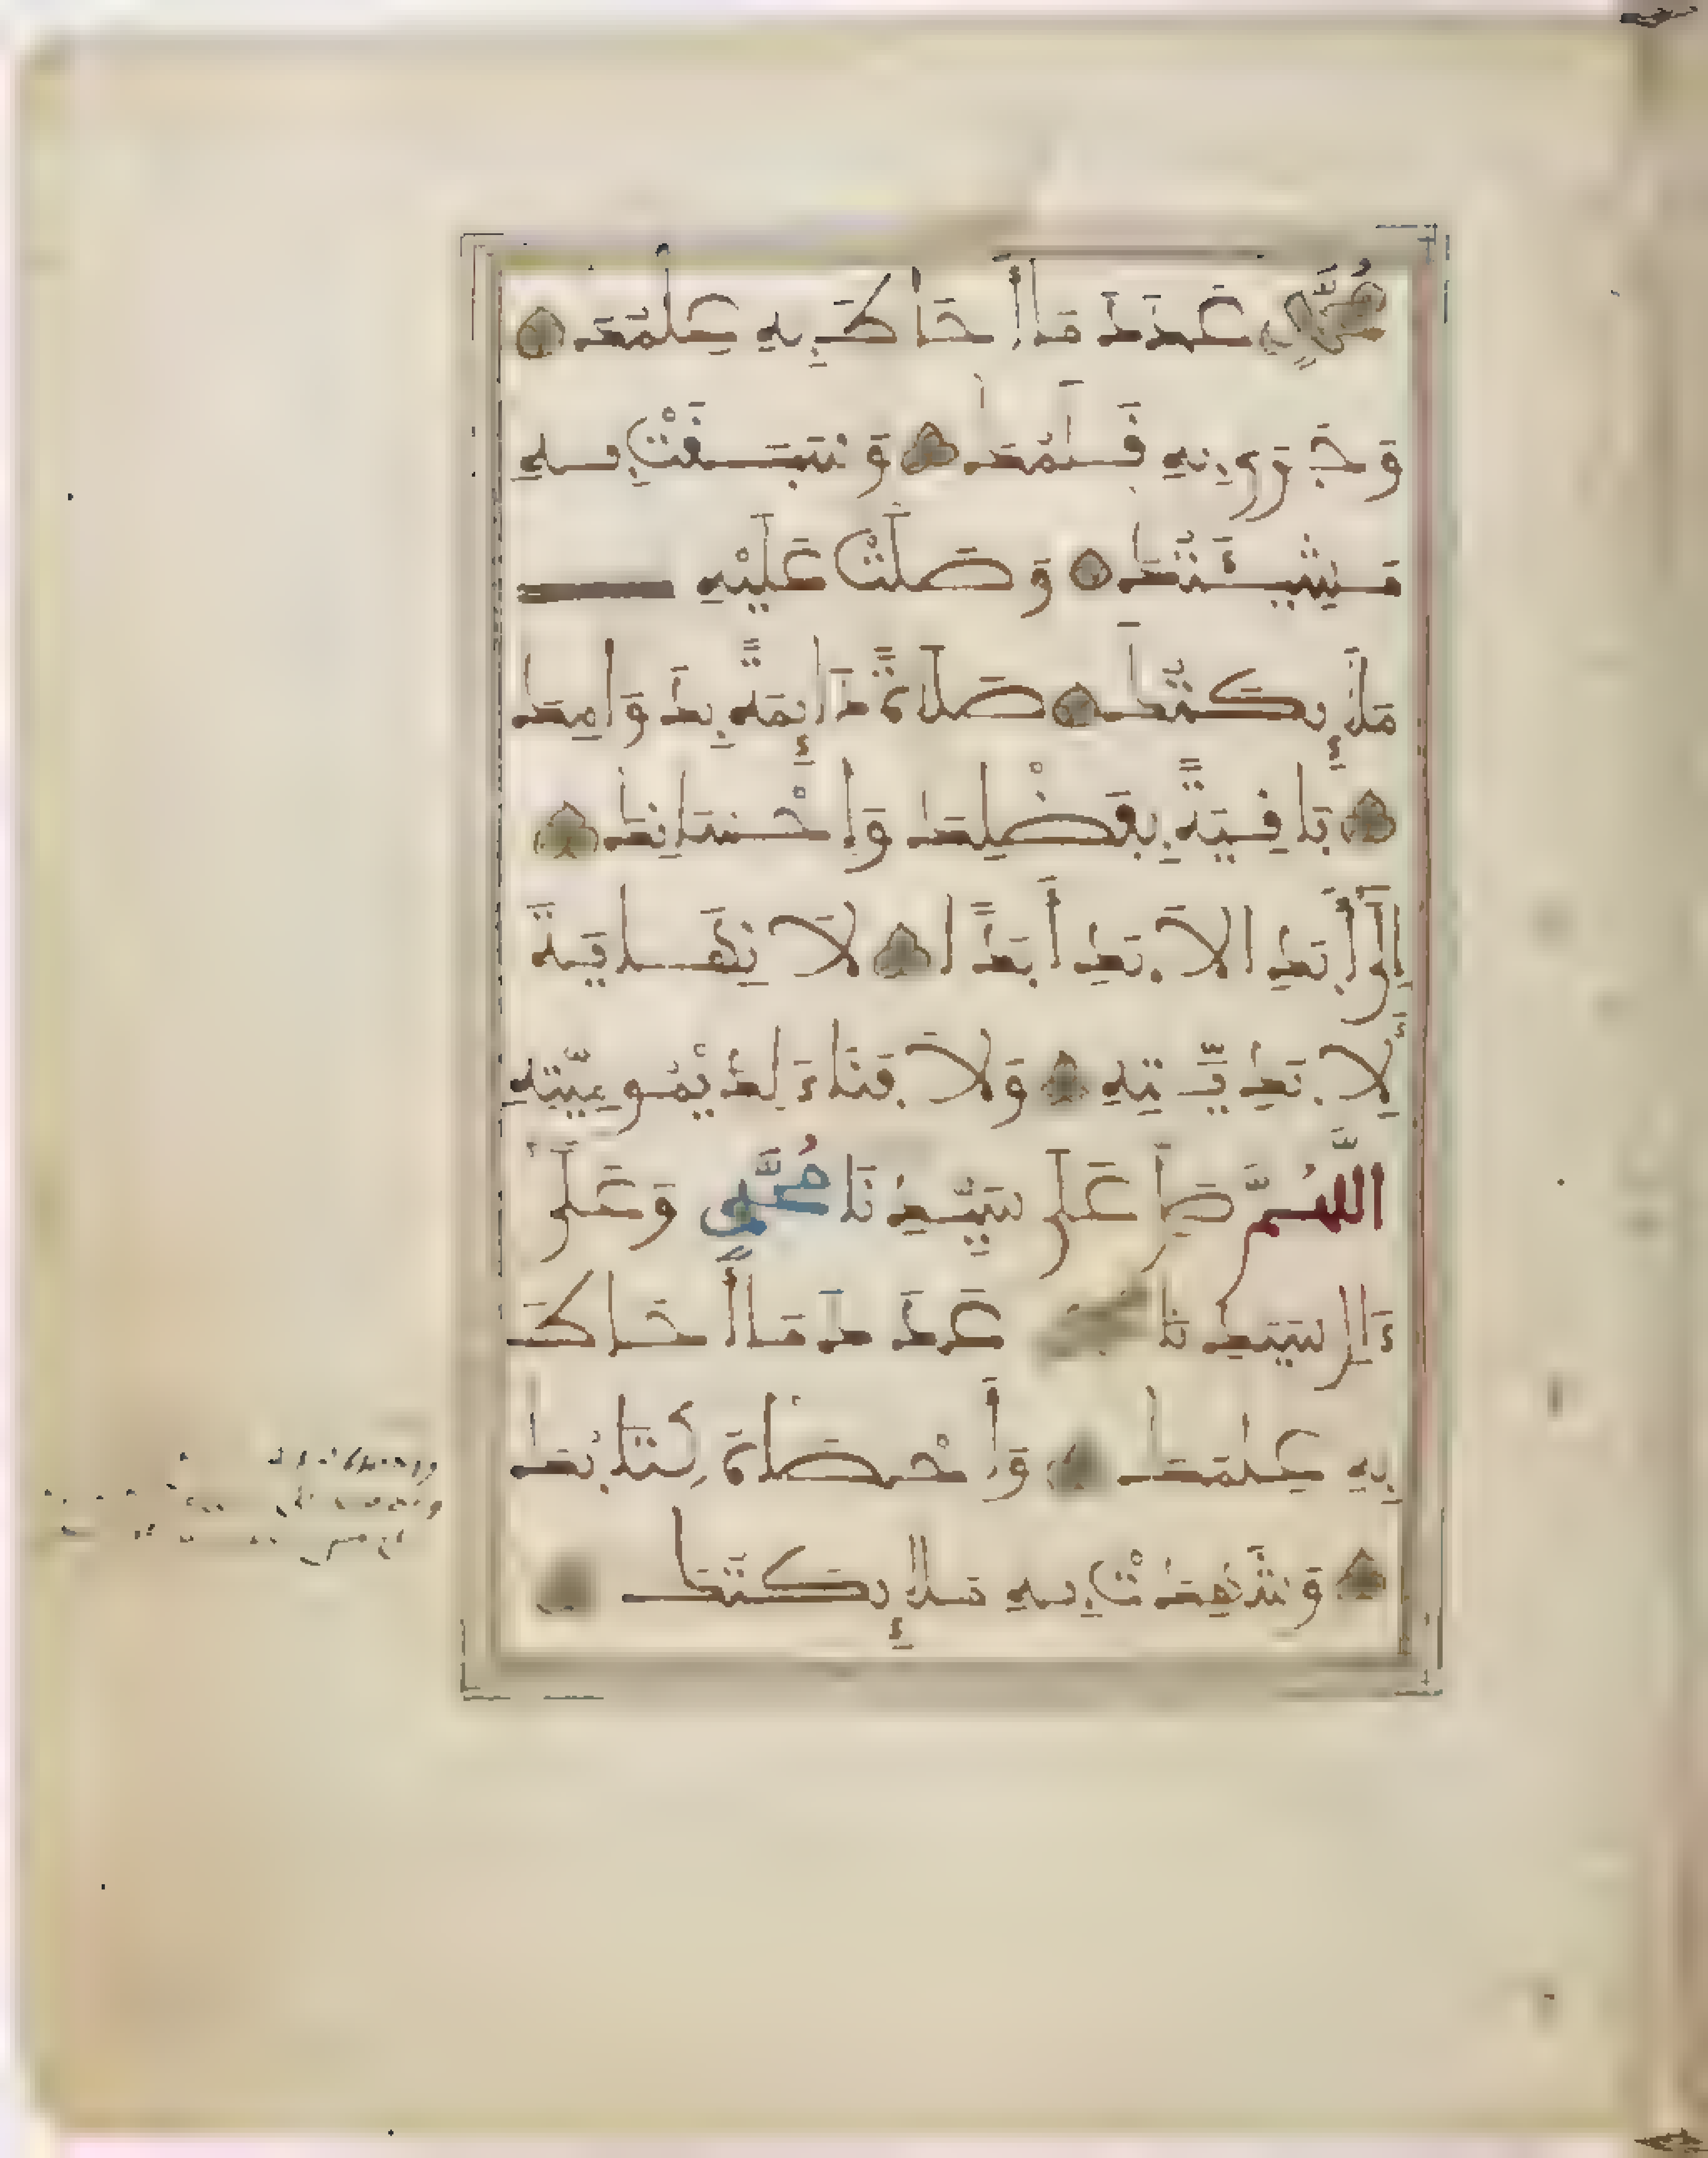 مُحَمَّدٍ عَدَدَ مَا أَحَاطَ بِهِ عِلْمُكَ
وَجَرَى بِهِ قَلَمُكَ وَسَبَقَتْ بِهِ
مَشِيئَتُكَ وَصَلَّتْ عَلَيْهِ
مَلَائِكَتُكَ صَلَاةً دَائِمَةً بِدَوَامِكَ
بَاقِيَةً بِفَضْلِكَ وَإِحْسَانِكَ
إِلَى أَبَدِ الْأَبَدِ أَبَدًا لَا نِهَايَةَ
لِأَبَدِيَّتِهِ وَلَا فَنَاءَ لِدَيْمُومِيَّتِهِ
اللَّهُمَّ صَلِّ عَلَى سَيِّدِنَا مُحَمَّدٍ وَعَلَى
ءَالِ سَيِّدِنَا عَدَدَ مَا أَحَاطَ
بِهِ عِلْمُكَ وَأَحْصَاهُ كِتَابُكَ
وَشَهِدَتْ بِهِ مَلَائِكَتُكَ